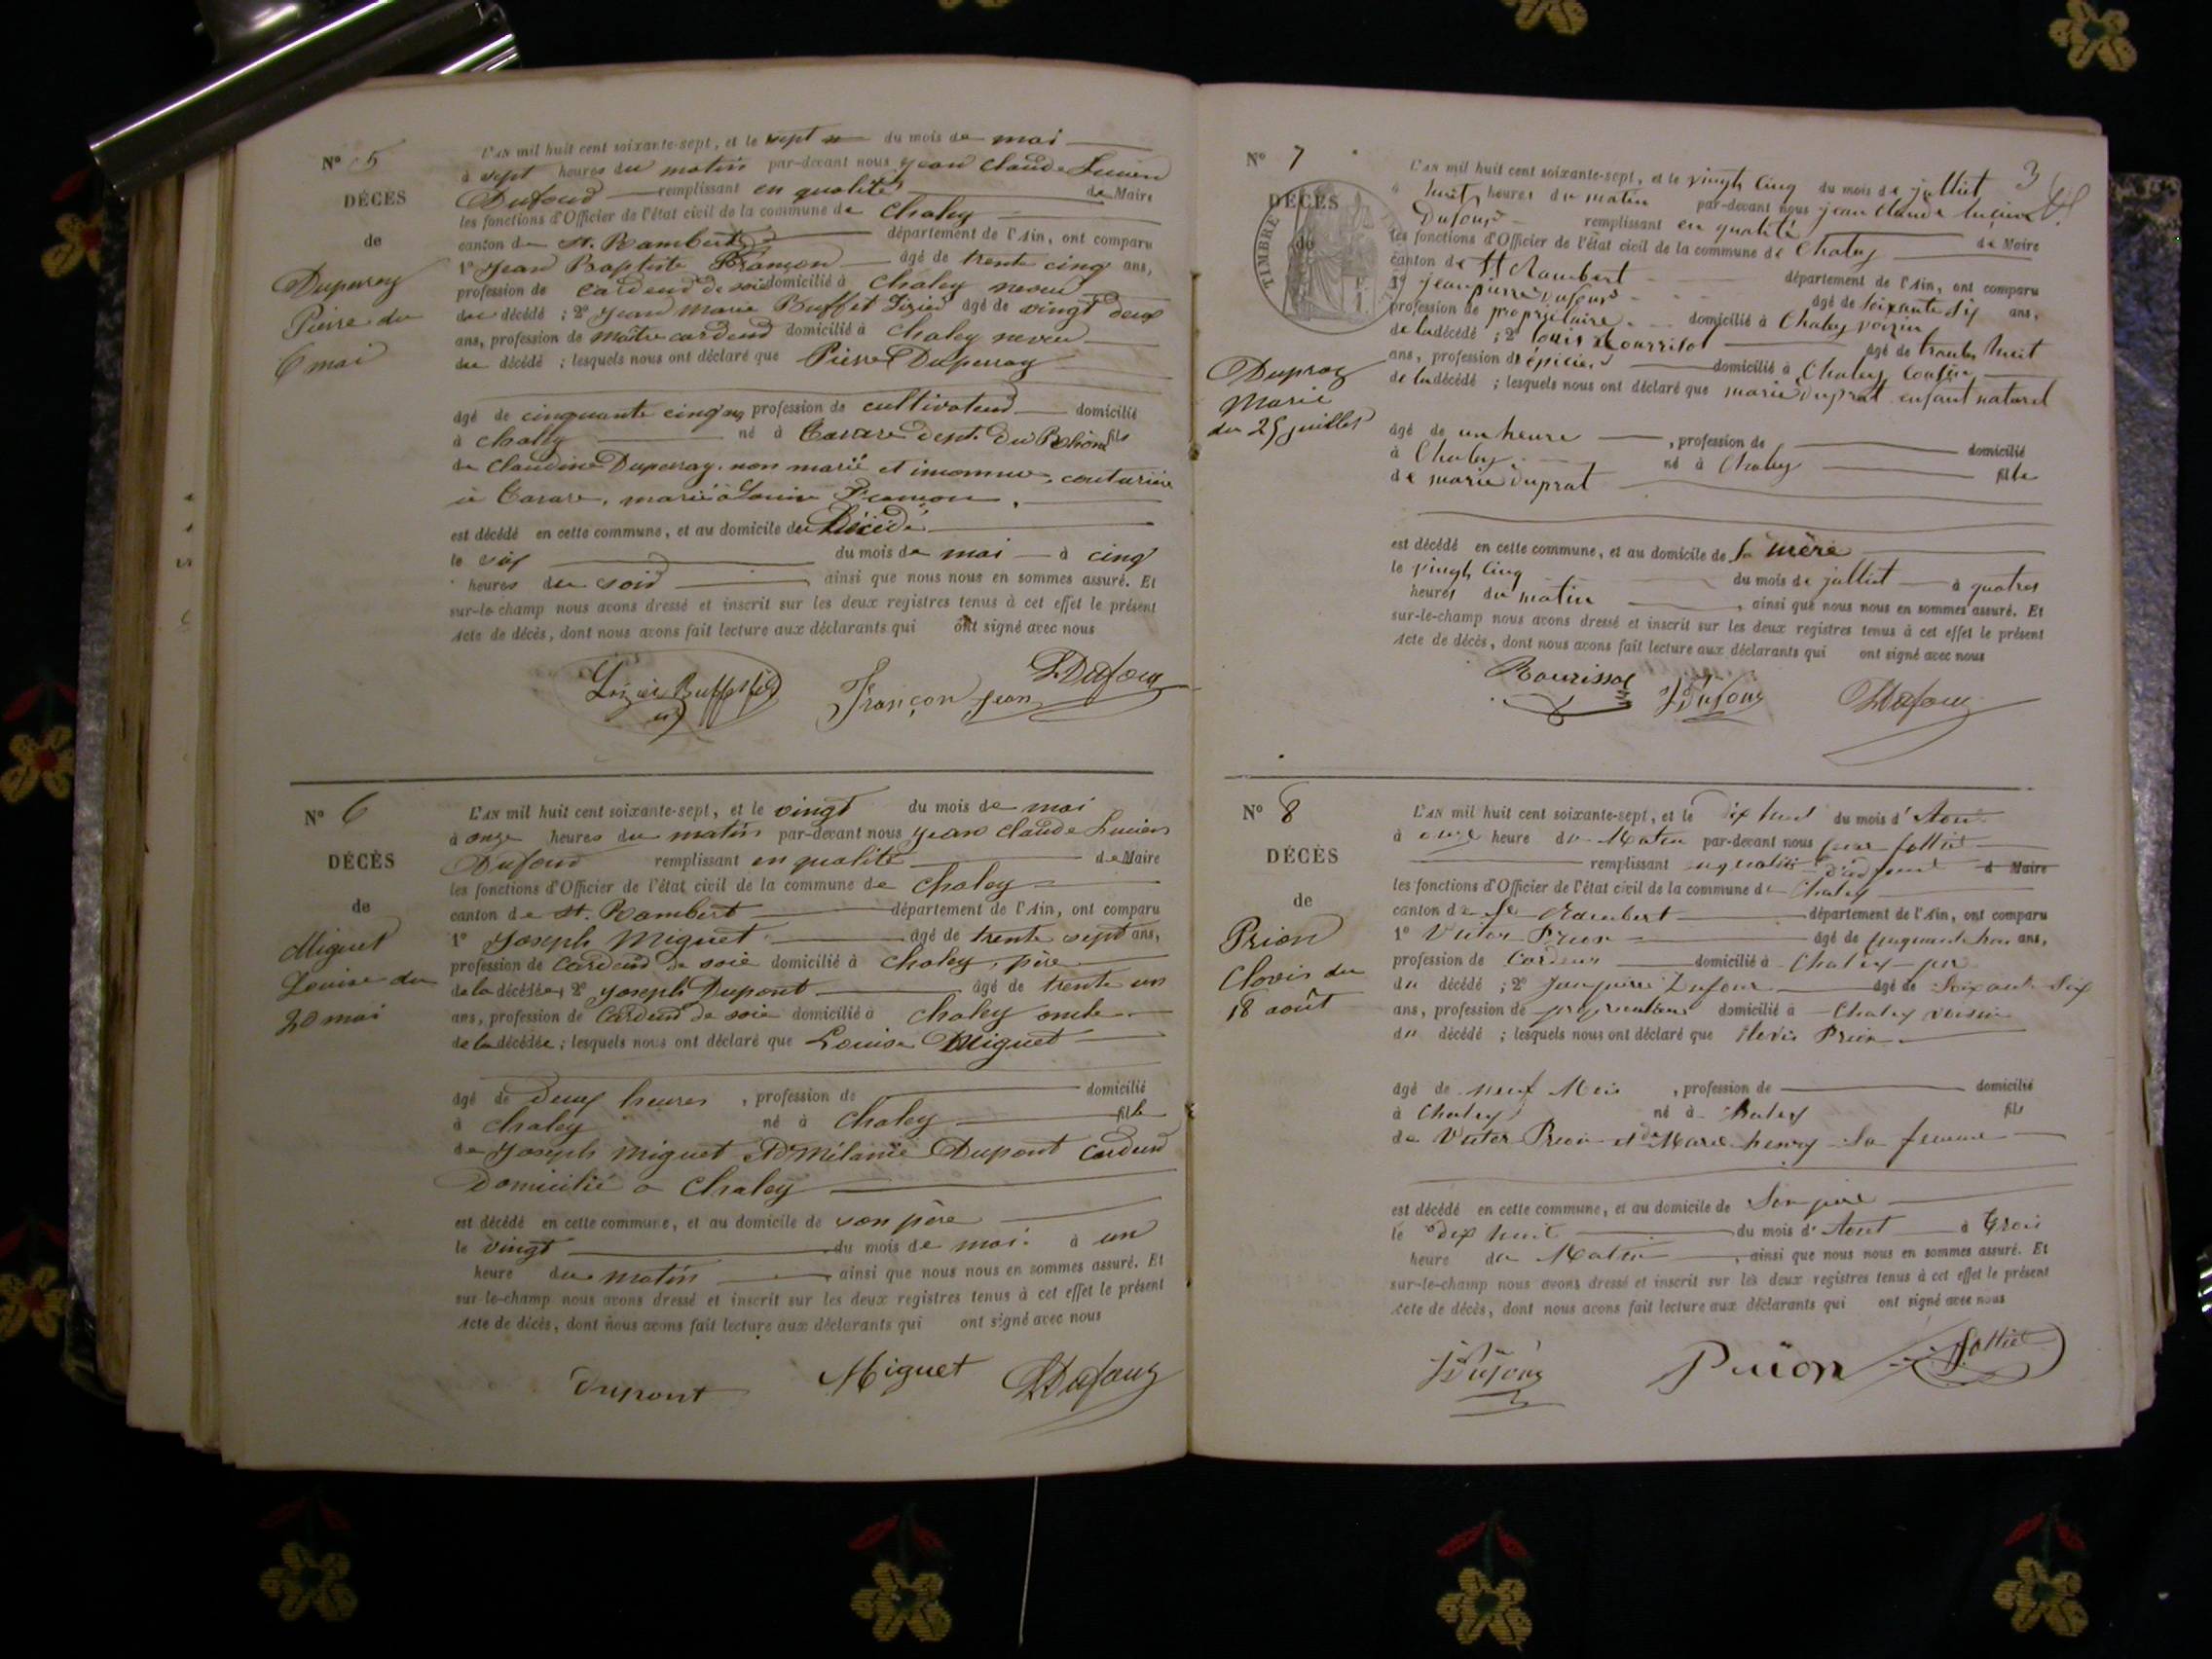 N° 5
DÉCÈS
de
Duperray
Pierre du
6 mai
L'AN mil huit cent soixante-sept, et le sept du mois de mai
à sept heures du matin par-devant nous jean Claude Lucien
Dufour remplissant en qualité de Maire
les fonctions d'Officier de l'état civil de la commune de Chaley
canton de St. Rambert département de l'Ain, ont comparu
1° Jean Baptiste Françon âgé de trente cinq ans,
profession de Cardeur de soie domicilié à Chaley neveu
du décédé ; 2° Jean Marie Buffet âgé de vingt deux
ans, profession de Maître cardeur domicilié à Chaley neveu
du décédé ; lesquels nous ont déclaré que Pierre Duperray
âgé de cinquante cinq ans profession de cultivateur domicilié
à Chaley né à Tarare dept. Du Rhône fils
de Claudine Duperray, non marié et inconnu, couturière
à Tarare, marié à Louise Françon.
est décédé en cette commune, et au domicile du Décédé
le six du mois de mai à cinq
heures du soir ainsi que nous nous en sommes assuré. Et
sur-le-champ nous avons dressé et inscrit sur les deux registres tenus à cet effet le présent
Acte de décès, dont nous avons fait lecture aux déclarants qui ont signé avec nous
Françon Jean LDufour
N° 6
DÉCÈS
de
Miguet
Louise du
20 mai
L'AN mil huit cent soixante-sept, et le vingt du mois de mai
à onze heures du matin par-devant nous jean Claude Lucien
Dufour remplissant en qualité de Maire
les fonctions d'Officier de l'état civil de la commune de Chaley
canton de St. Rambert département de l'Ain, ont comparu
1° Joseph Miguet âgé de trente sept ans,
profession de Cardeur de soie domicilié à Chaley, père
de la décédée ; 2° Joseph Dupont âgé de trente un
ans, profession de Cardeur de soie domicilié à Chaley oncle
de la décédée ; lesquels nous ont déclaré que Louise Miguet
âgé de Deux heures , profession de domicilié
à Chaley né à Chaley fille
de Joseph Miguet Et Mélanie Dupont Cardeur
Domicilié à Chaley
est décédé en cette commune, et au domicile de son père
le vingt du mois de mai à un
heure du matin ainsi que nous nous en sommes assuré. Et
sur-le-champ nous avons dressé et inscrit sur les deux registres tenus à cet effet le présent
Acte de décès, dont nous avons fait lecture aux déclarants qui ont signé avec nous
Dupont Miguet LDufour
3
N° 7
DÉCÈS
de
TIMBRE
Dupraz
Marie
du 25 juillet
L'AN mil huit cent soixante-sept, et le vingt cinq du mois de juillet
à huit heures du matin par-devant nous jean Claude lucien
Dufour remplissant en qualité de Maire
les fonctions d'Officier de l'état civil de la commune de Chaley
canton de St Rambert département de l'Ain, ont comparu
1° jean pierre Dufour âgé de soixante six ans,
profession de propriétaire domicilié à Chaley voisin
de la décédé ; 2° louis Rourrisol âgé de trante huit
ans, profession d'épicier domicilié à Chaley Cousin
de la décédé ; lesquels nous ont déclaré que marie duprat enfant naturel
âgé de un heure , profession de domicilié
à Chaley né à Chaley fille
de marie duprat
est décédé en cette commune, et au domicile de sa mère
le vingt cinq du mois de juillet à quatres
heures du matin , ainsi que nous nous en sommes assuré. Et
sur-le-champ nous avons dressé et inscrit sur les deux registres tenus à cet effet le présent
Acte de décès, dont nous avons fait lecture aux déclarants qui ont signé avec nous
JDufour LDufour
N° 8
DÉCÈS
de
Prion
Clovis du
18 août
L'AN mil huit cent soixante-sept, et le dix huit du mois d'Aout
à onze heure du Matin par-devant nous
remplissant en qualité d'adjoint d Maire
les fonctions d'Officier de l'état civil de la commune de Chaley
canton de St Rambert département de l'Ain, ont comparu
1° Victor Prion âgé de ans,
profession de Cardeur domicilié à Chaley père
du décédé ; 2° Jean pierre Dufour âgé de Soixante Six
ans, profession de propriétaire domicilié à Chaley voisin
du décédé ; lesquels nous ont déclaré que Clovis Prion
âgé de neuf Mois , profession de domicilié
à Chaley né à Chaley fils
de Victor Prion et de Marie henry Sa femme
est décédé en cette commune, et au domicile de Son père
le dix huit du mois d'Aout à trois
heure du Matin , ainsi que nous nous en sommes assuré. Et
sur-le-champ nous avons dressé et inscrit sur les deux registres tenus à cet effet le présent
Acte de décès, dont nous avons fait lecture aux déclarants qui ont signé avec nous
JDufour Prion